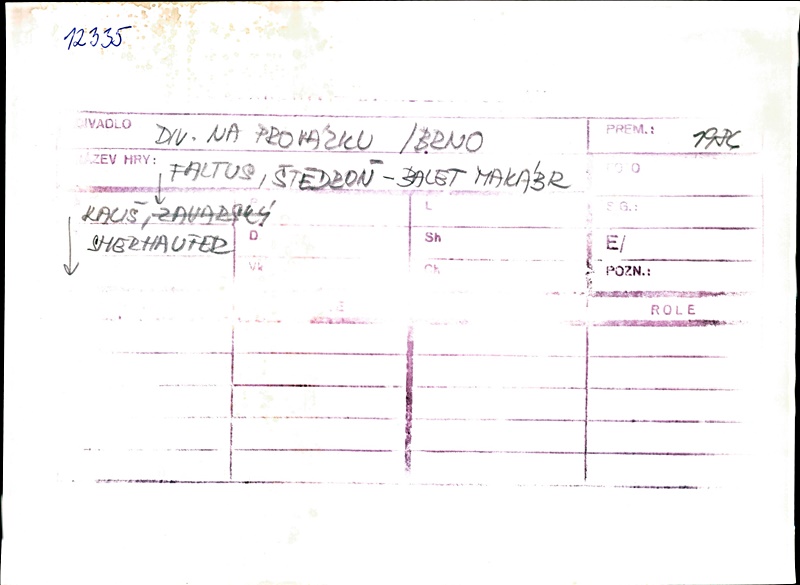 12335
DIVADLO DIV. NA PROVÁZKU / BRNO PREM.: 1986
NÁZEV HRY: FALTUS, ŠTĚDROŇ - BALET MAKÁBR
KALIŠ, ZAVARSKÝ L
SMERHAUTER D Sh E/
Vk Ch POZN.:
ROLE